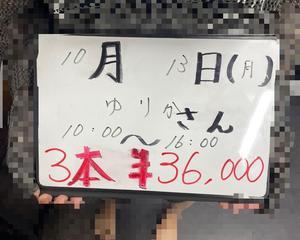 10月 13日(月)
ゆりかさん
10:00〜16:00
3本 ¥36,000